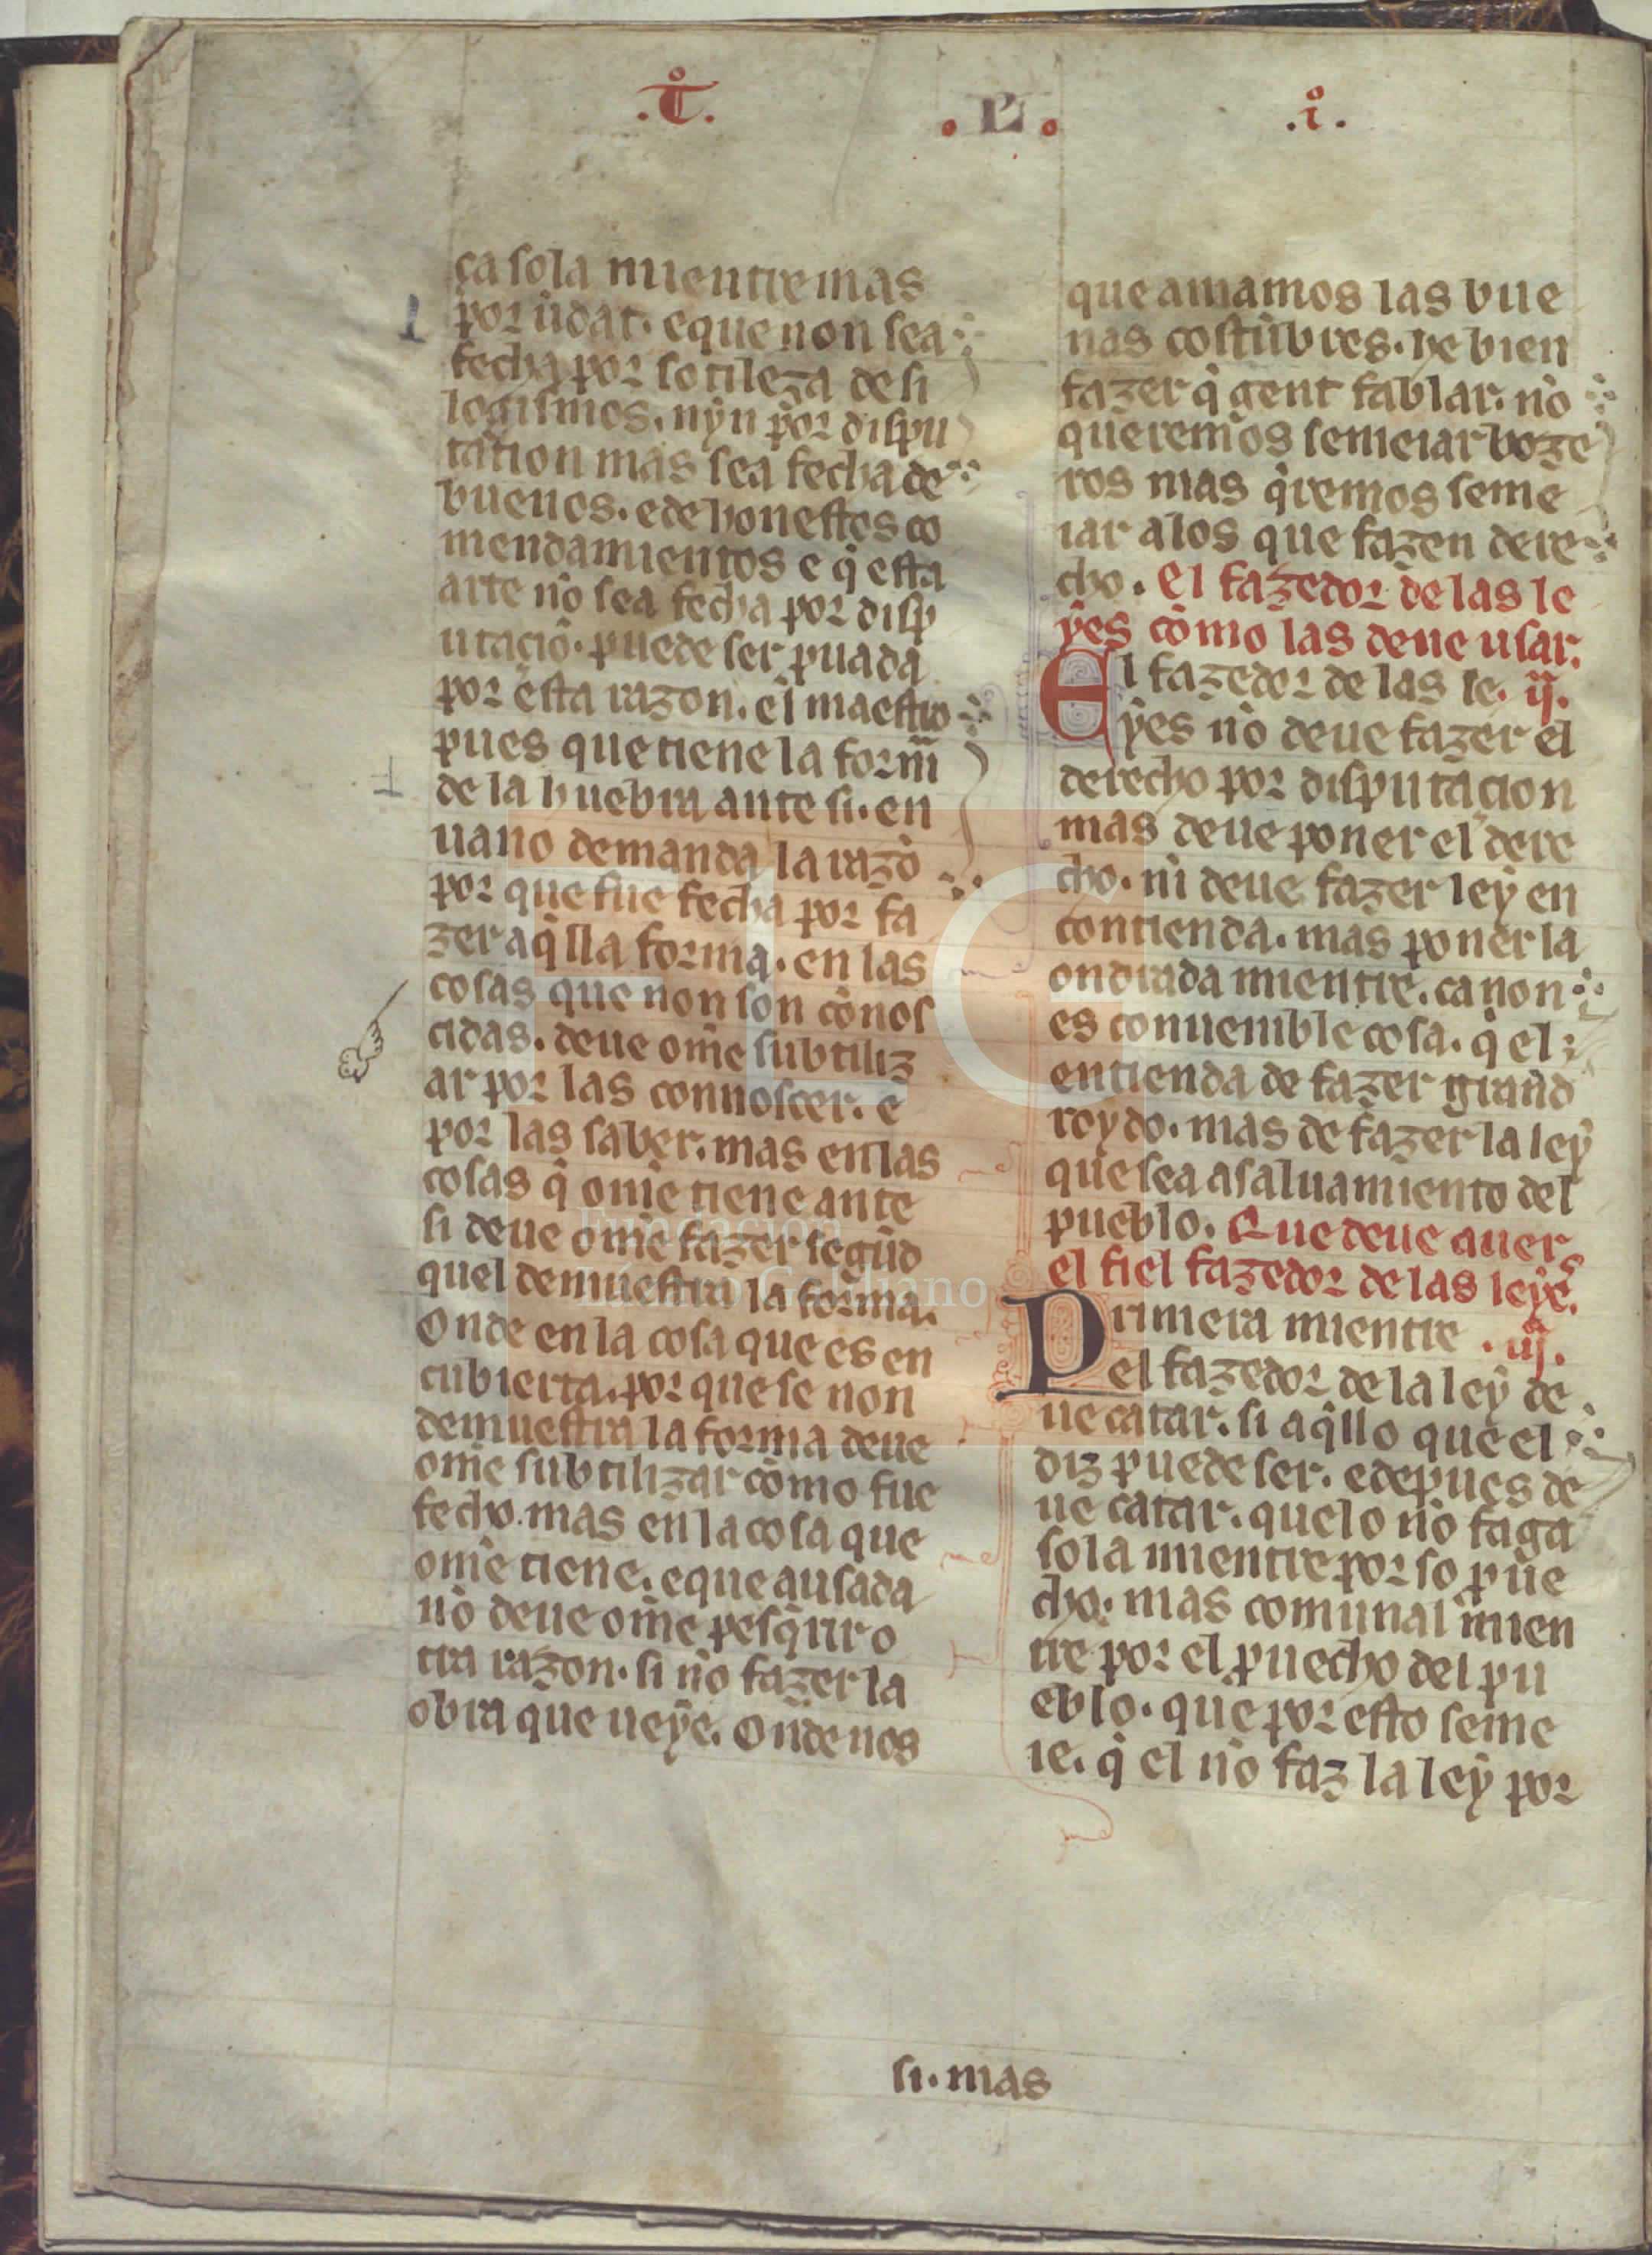 .T̊. .L. .i̊.
ca sola mientre mas
por u̇dat. e que non sea
fecha por sotileza de si
logismos. nyn por dispu
tation mas sea fecha de
buenos. e de honestos co
mendamientos e q̇ esta
arte nȯ sea fecha por disp
utaciō. puede ser ꝓuada
por esta razon. el maestro
pues que tiene la form̄
de la huebra ante si. en
uano demanda la razō
por que fue fecha por fa
zer aq̇lla forma. en las
cosas que non son cōnos
cidas. deue ome subtiliz
ar por las connoscer. e
por las saber. mas en las
cosas q̇ ome tiene ante
si deue ome fazer segūd
quel demuestra la forma.
Onde en la cosa que es en
cubierta. por que se non
demuestra la forma deue
ome subtilizar cōmo fue
fecho. mas en la cosa que
ome tiene. e que a usada
nō deue ome pesq̇rir o
tra razon. si nō fazer la
obra que ueye. Onde nos
que amamos las bue
nas costūbres. de bien
fazer q̇ gent fablar. nō
queremos semeiar boze
ros mas q̇remos seme
iar a los que fazen dere
cho. El fazedor de las le
yes cōmo las deue usar.
El fazedor de las le .ij.
yes nō deue fazer el
derecho por disputacion
mas deue poner el dere
cho. nī deue fazer ley en
contienda. mas poner la
ondrada mientre. ca non
es conuenible cosa. q̇ el
entienda de fazer grand
roydo. mas de fazer la ley
que sea a saluamiento del
pueblo. Que deue auer
el fiel fazedor de las leyes.
Primera mientre .iij.
el fazedor de la ley de
ue catar. si aq̇llo que el
diz puede ser. e depues de
ue catar. que lo nō faga
sola mientre por so ꝓue
cho. mas comunal mien
tre por el ꝓuecho del pu
eblo. que por esto seme
ie. q̇ el nō faz la ley por
si. mas
Fundación
Lázaro Galdiano